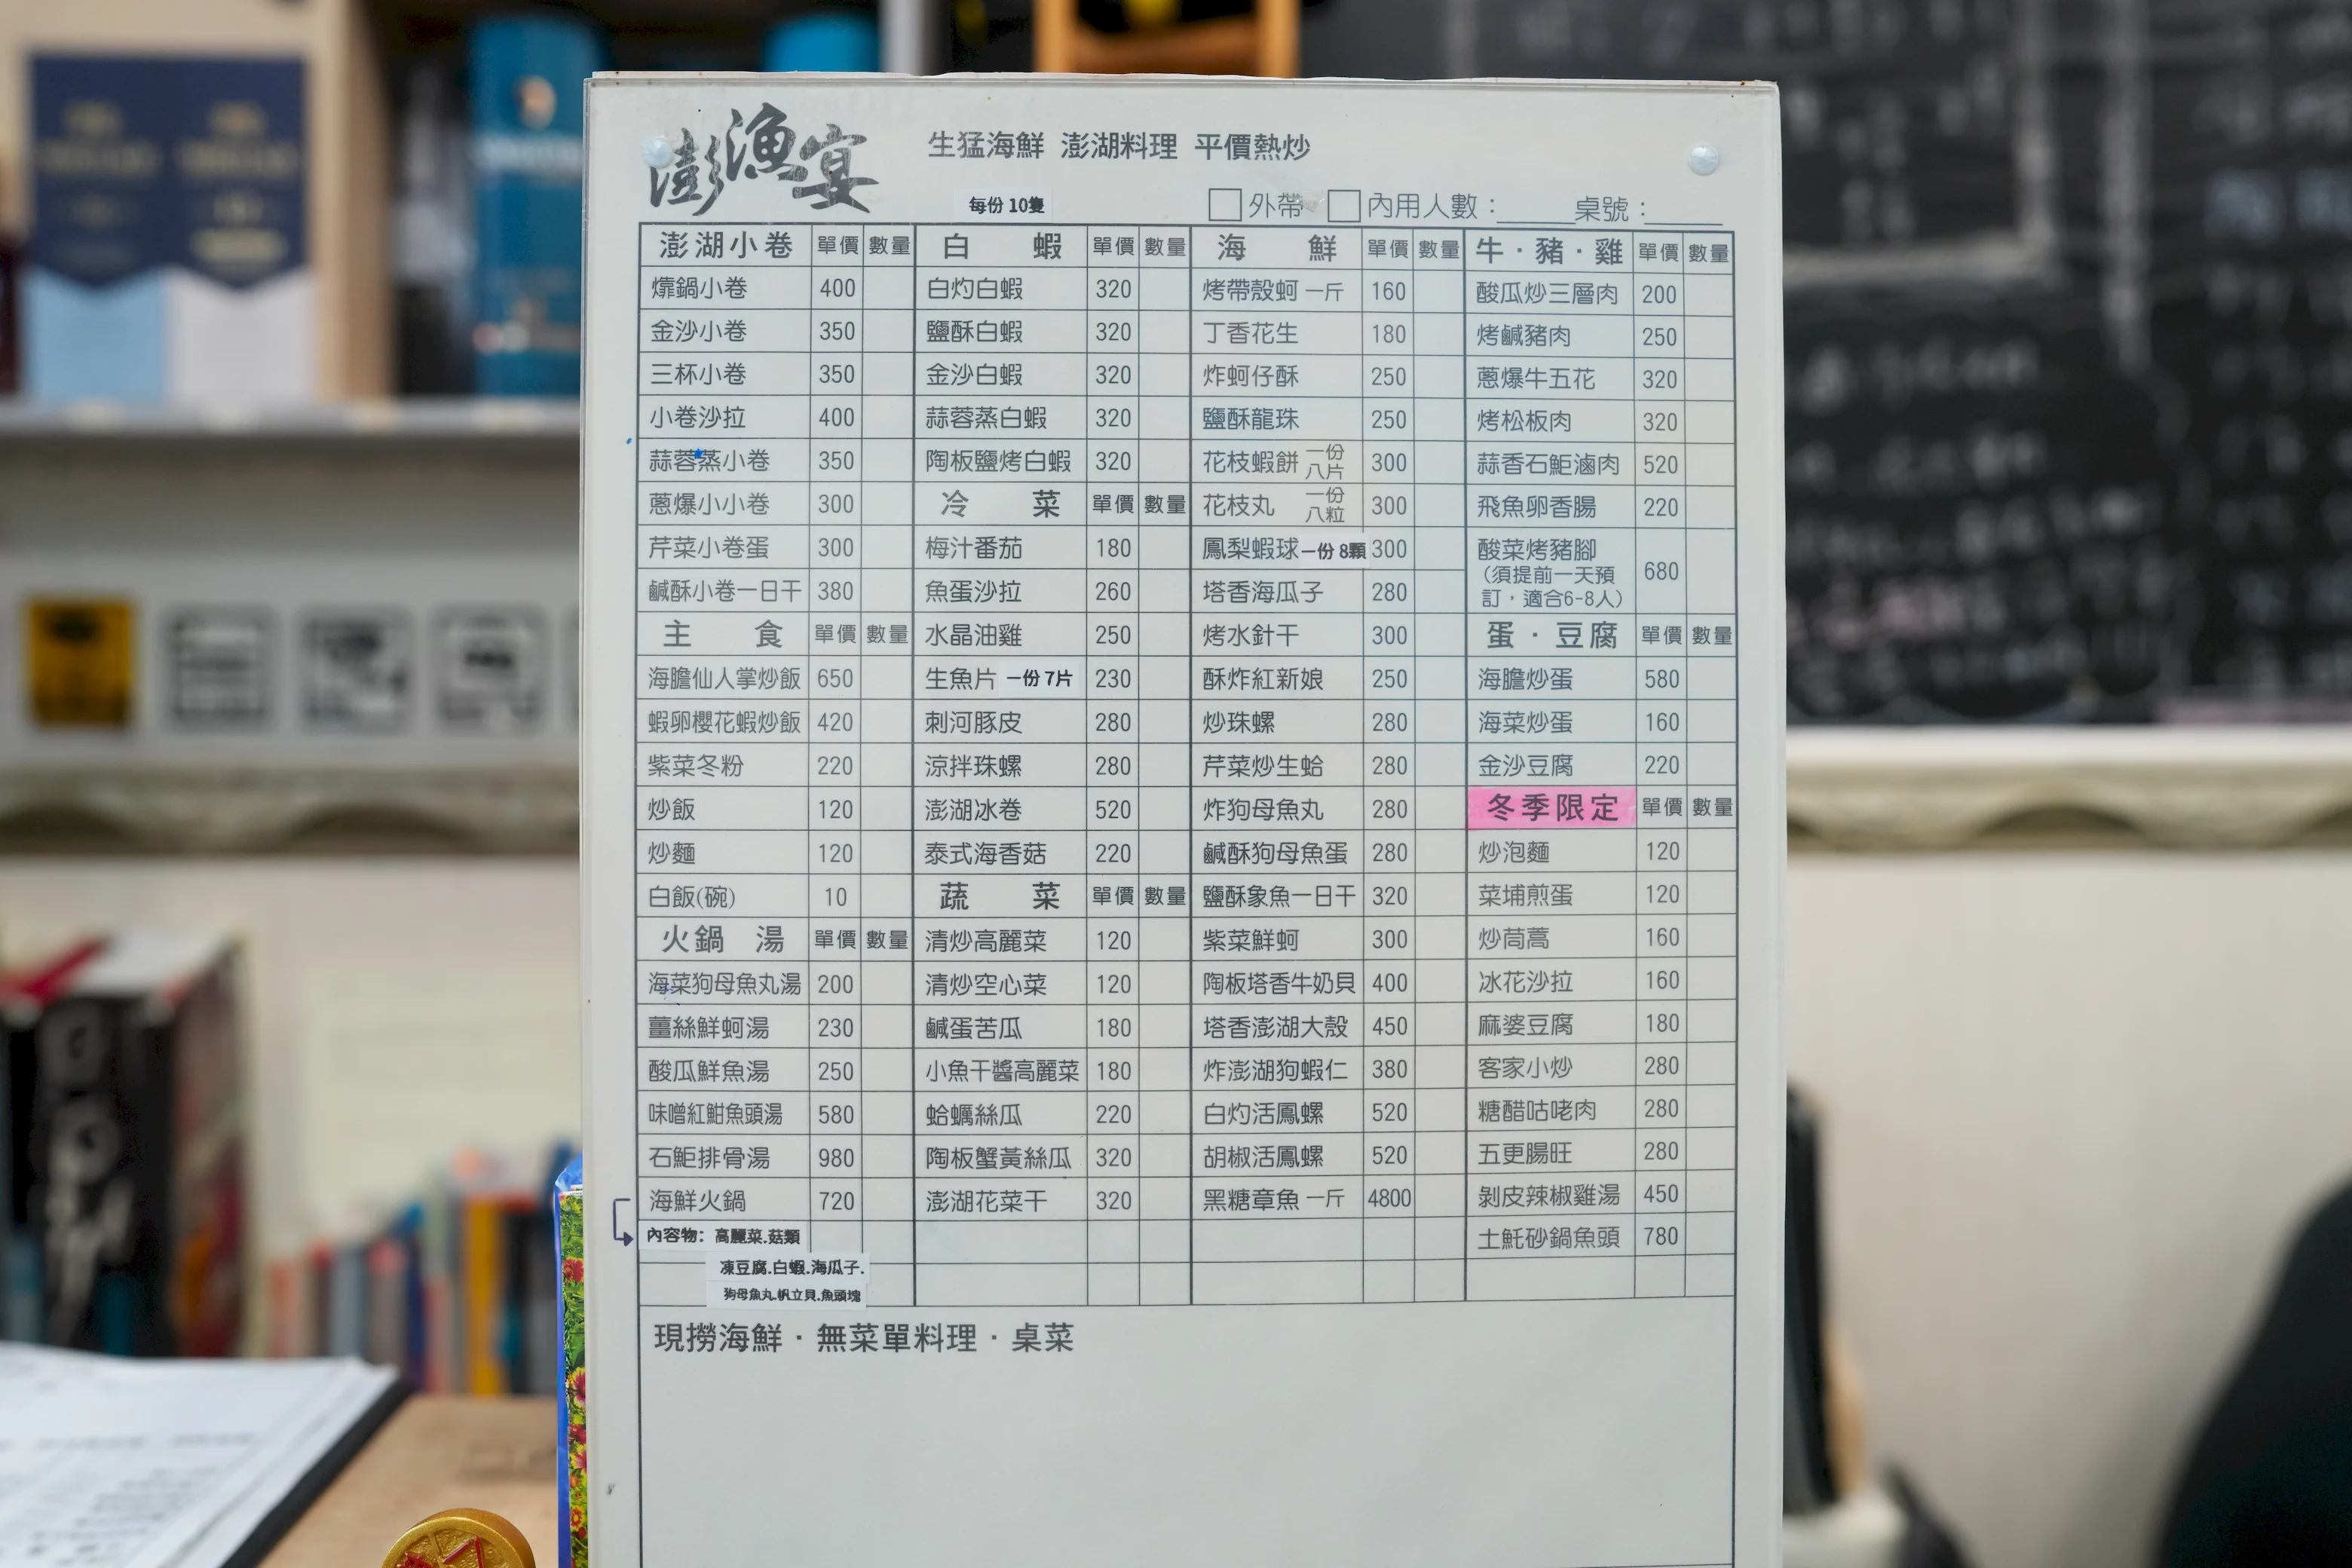 澎漁宴
生猛海鮮 澎湖料理 平價熱炒
每份10隻
□外帶 □內用人數：_____桌號：_____
澎湖小卷 單價 數量
㸆鍋小卷 400
金沙小卷 350
三杯小卷 350
小卷沙拉 400
蒜蓉蒸小卷 350
蔥爆小小卷 300
芹菜小卷蛋 300
鹹酥小卷一日干 380
主食 單價 數量
海膽仙人掌炒飯 650
蝦卵櫻花蝦炒飯 420
紫菜冬粉 220
炒飯 120
炒麵 120
白飯(碗) 10
火鍋 湯 單價 數量
海菜狗母魚丸湯 200
薑絲鮮蚵湯 230
酸瓜鮮魚湯 250
味噌紅魽魚頭湯 580
石鮔排骨湯 980
海鮮火鍋 720
內容物：高麗菜.菇類
凍豆腐.白蝦.海瓜子.
狗母魚丸.帆立貝.魚頭塊
白蝦 單價 數量
白灼白蝦 320
鹽酥白蝦 320
金沙白蝦 320
蒜蓉蒸白蝦 320
陶板鹽烤白蝦 320
冷菜 單價 數量
梅汁番茄 180
魚蛋沙拉 260
水晶油雞 250
生魚片 一份7片 230
刺河豚皮 280
涼拌珠螺 280
澎湖冰卷 520
泰式海香菇 220
蔬菜 單價 數量
清炒高麗菜 120
清炒空心菜 120
鹹蛋苦瓜 180
小魚干醬高麗菜 180
蛤蠣絲瓜 220
陶板蟹黃絲瓜 320
澎湖花菜干 320
海鮮 單價 數量
烤帶殼蚵 一斤 160
丁香花生 180
炸蚵仔酥 250
鹽酥龍珠 250
花枝蝦餅 一份八片 300
花枝丸 一份八粒 300
鳳梨蝦球 一份8顆 300
塔香海瓜子 280
烤水針干 300
酥炸紅新娘 250
炒珠螺 280
芹菜炒生蛤 280
炸狗母魚丸 280
鹹酥狗母魚蛋 280
鹽酥象魚一日干 320
紫菜鮮蚵 300
陶板塔香牛奶貝 400
塔香澎湖大殼 450
炸澎湖狗蝦仁 380
白灼活鳳螺 520
胡椒活鳳螺 520
黑糖章魚 一斤 4800
牛·豬·雞 單價 數量
酸瓜炒三層肉 200
烤鹹豬肉 250
蔥爆牛五花 320
烤松板肉 320
蒜香石鮔滷肉 520
飛魚卵香腸 220
酸菜烤豬腳 680
（須提前一天預
訂，適合6-8人）
蛋·豆腐 單價 數量
海膽炒蛋 580
海菜炒蛋 160
金沙豆腐 220
冬季限定 單價 數量
炒泡麵 120
菜埔煎蛋 120
炒茼蒿 160
冰花沙拉 160
麻婆豆腐 180
客家小炒 280
糖醋咕咾肉 280
五更腸旺 280
剝皮辣椒雞湯 450
土魠砂鍋魚頭 780
現撈海鮮·無菜單料理·桌菜